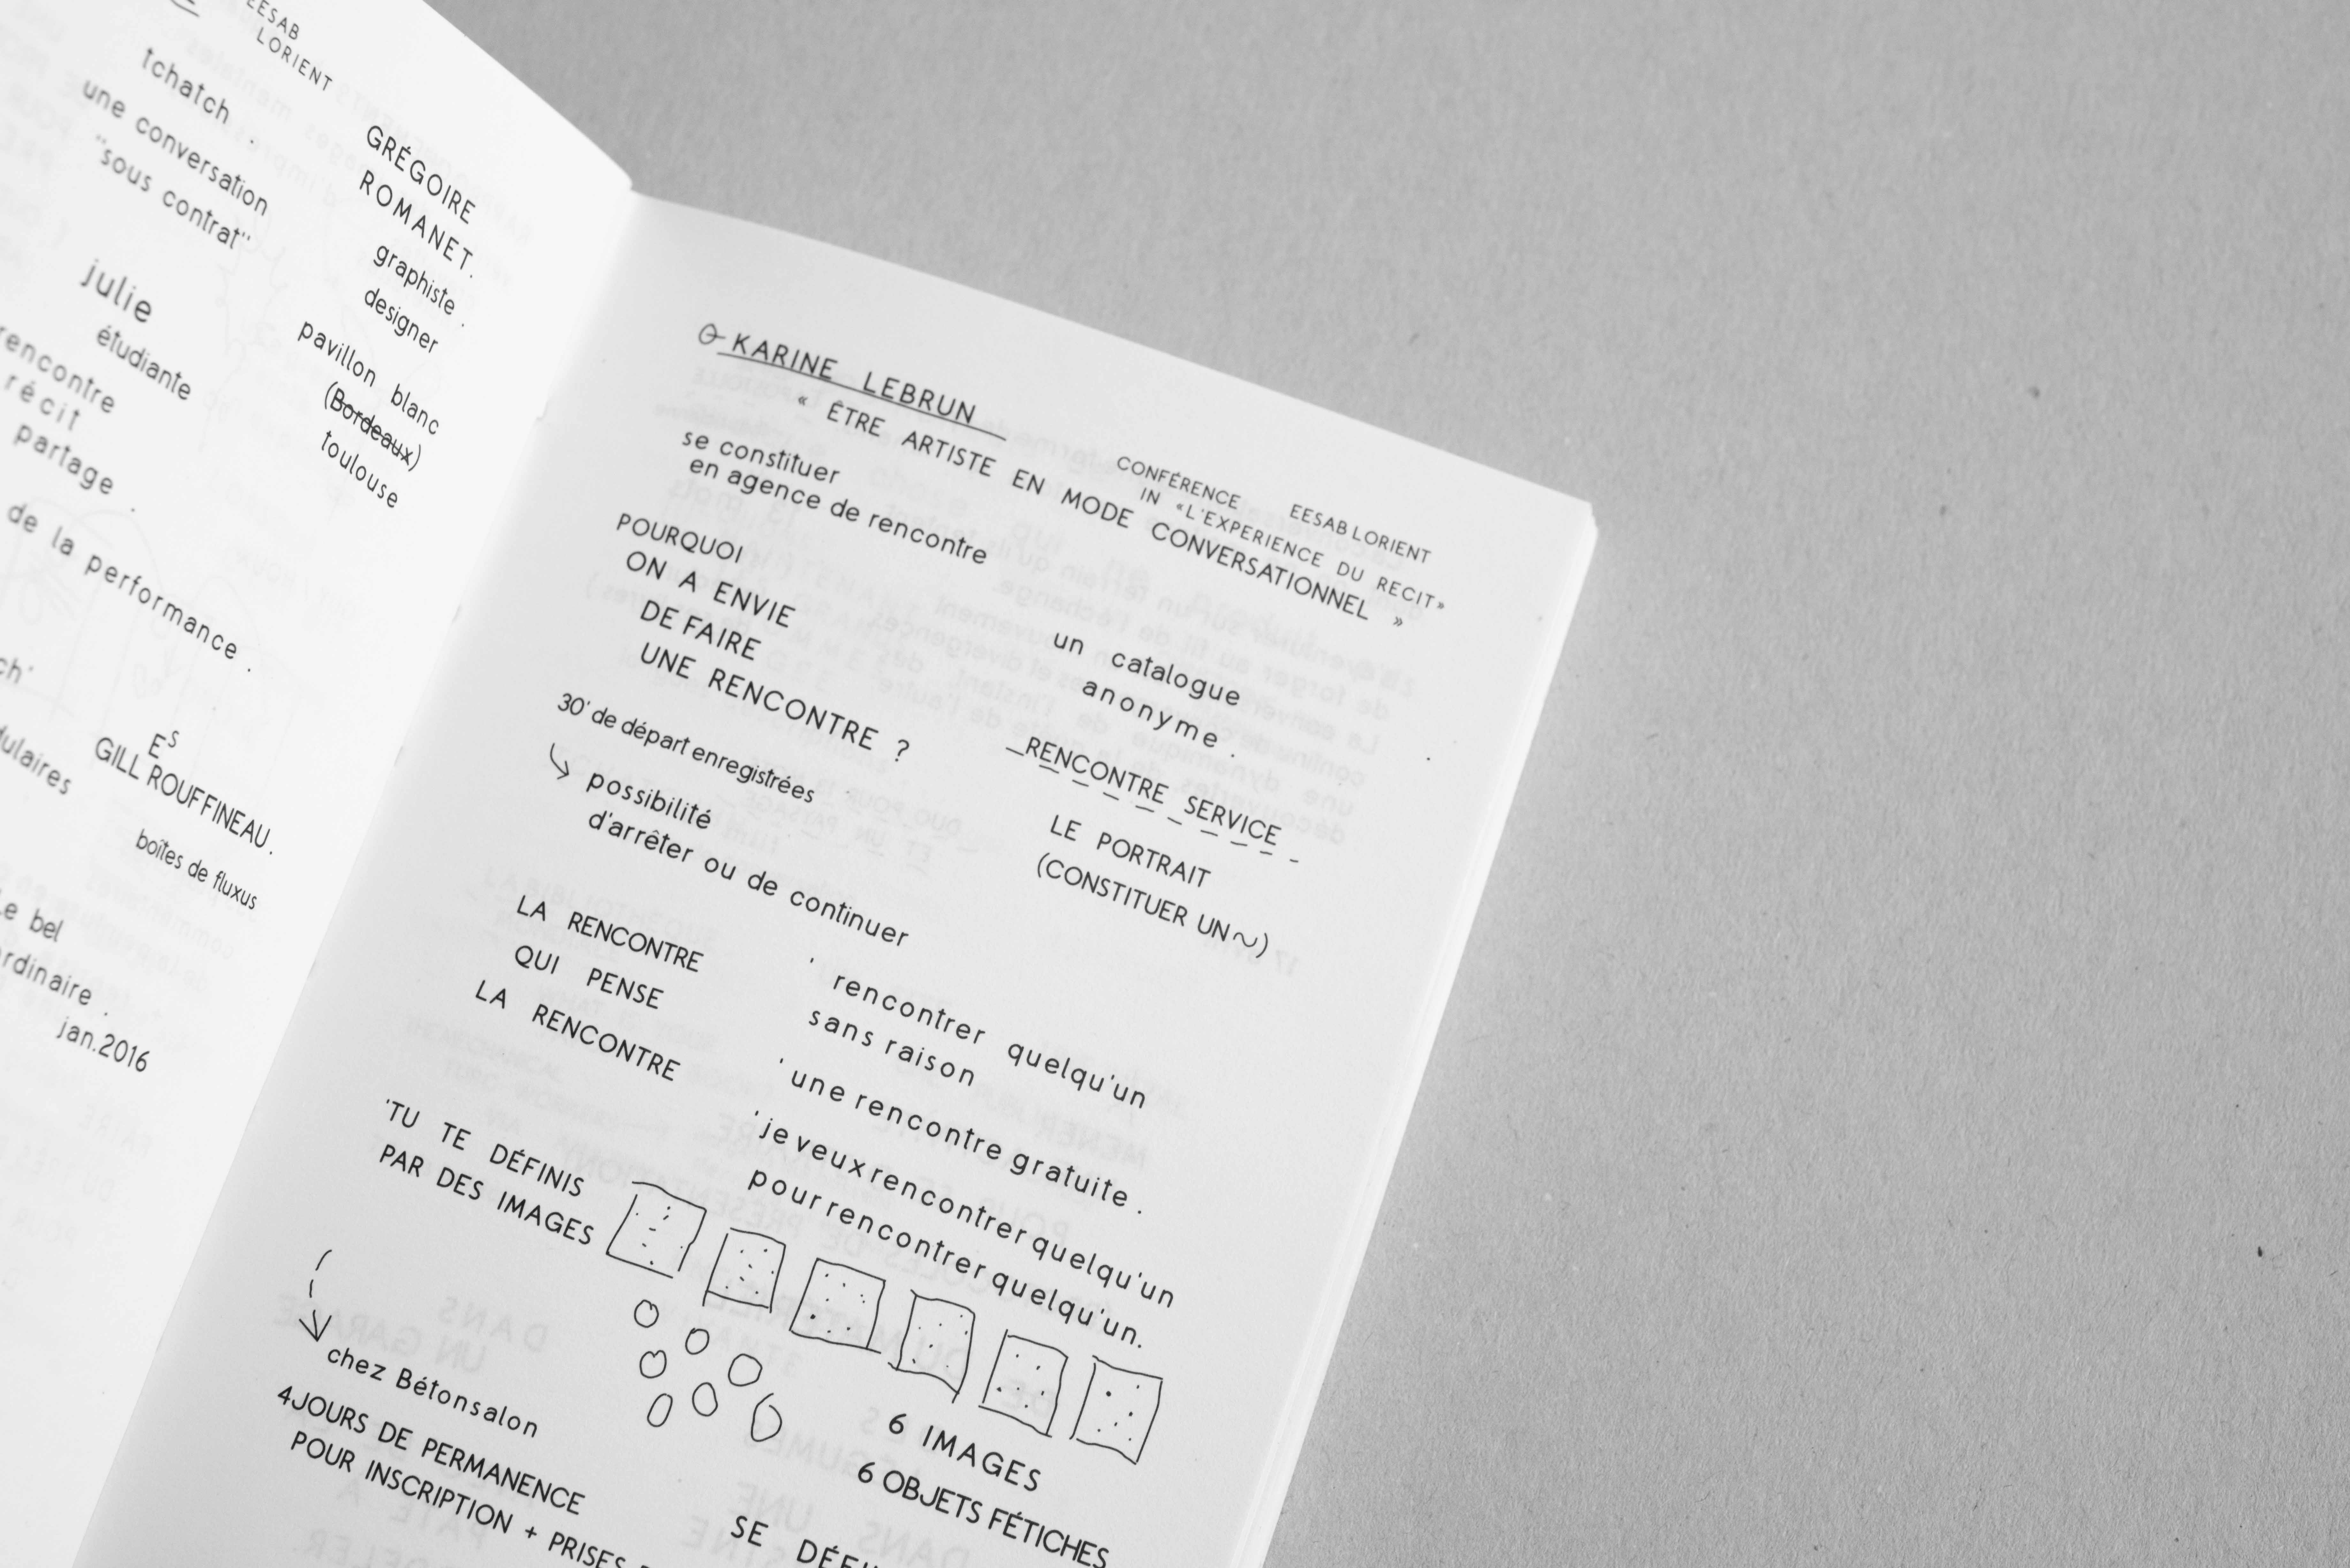 EESAB
LORIENT
tchatch .
une conversation
"sous contrat"
julie
étudiante
rencontre
récit
partage .
de la performance .
GRÉGOIRE
ROMANET.
graphiste .
designer
pavillon blanc
(Bordeaux)
toulouse
ES
GILL ROUFFINEAU.
boîtes de fluxus
bel
jan.2016
KARINE LEBRUN
« ÊTRE ARTISTE EN MODE CONVERSATIONNEL »
CONFÉRENCE EESAB LORIENT
IN «L'EXPERIENCE DU RECIT»
se constituer
en agence de rencontre
POURQUOI
ON A ENVIE
DE FAIRE
UNE RENCONTRE ?
un catalogue
anonyme .
30' de départ enregistrées
possibilité
d'arrêter ou de continuer
RENCONTRE SERVICE
LE PORTRAIT
(CONSTITUER UN ~)
LA RENCONTRE
QUI PENSE
LA RENCONTRE
' rencontrer quelqu'un
sans raison
' une rencontre gratuite .
' je veux rencontrer quelqu'un
pour rencontrer quelqu'un.
'TU TE DÉFINIS
PAR DES IMAGES
6 IMAGES
6 OBJETS FÉTICHES
chez Bétonsalon
4 JOURS DE PERMANENCE
POUR INSCRIPTION + PRISES
SE